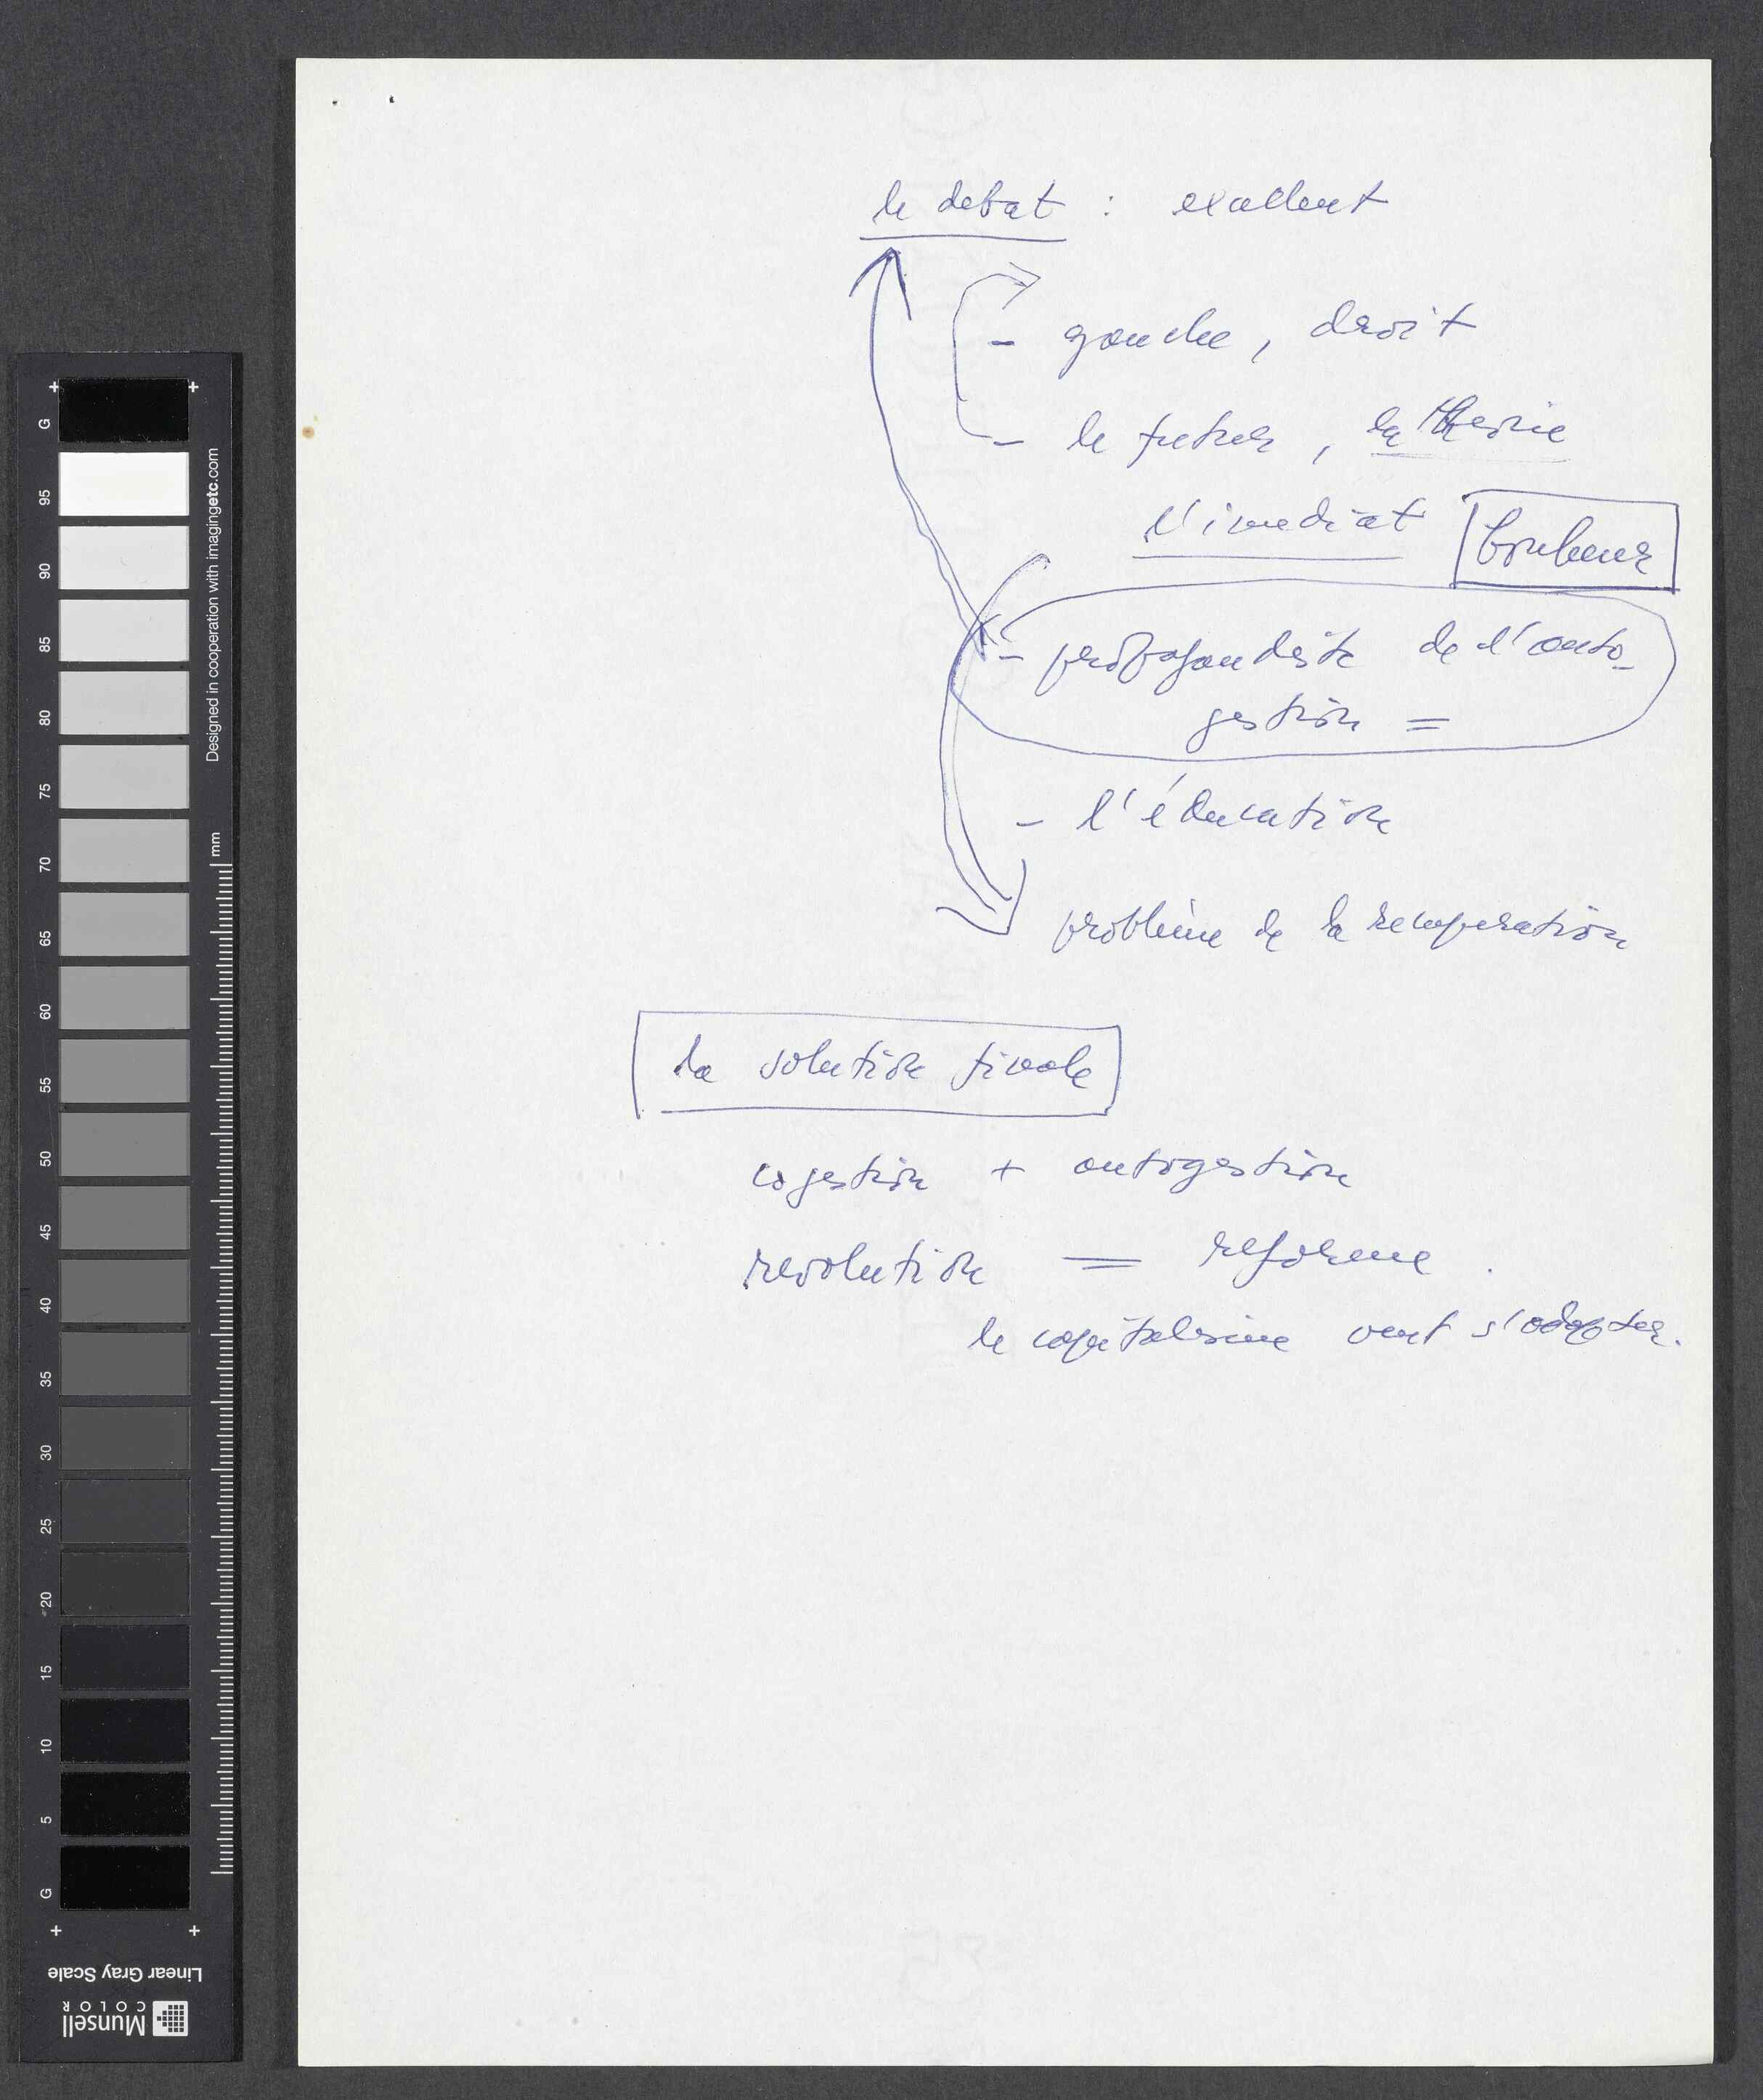 le debat : excellent
- gauche, droit
- le futur, la théorie
l'imediat bonheur
- propagandiste de l'auto-
gestion =
- l'éducation
problème de la recuperation
la solution finale
cogestion + autogestion
revolution = reforme.
le capitalisme veut s'adapter.
G
95
90
85
80
75
70
65
60
55
50
45
40
35
30
25
20
15
10
5
G
mm
Designed in cooperation with imagingetc.com
Linear Gray Scale
Munsell
COLOR